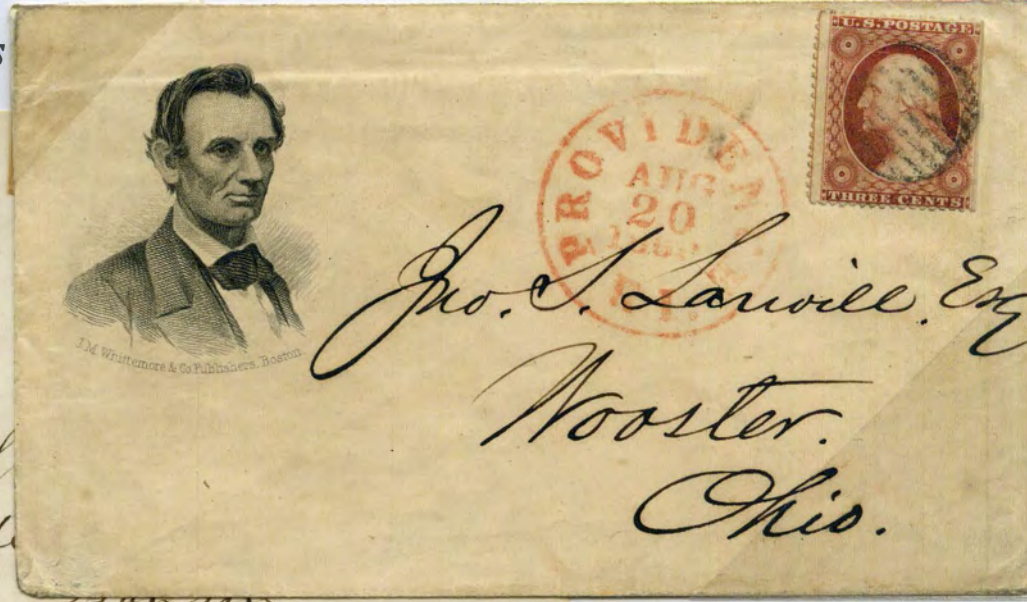 U.S. POSTAGE
THREE CENTS
PROVIDENCE
AUG
20
R.I.
J.M. Whittemore & Co Publishers, Boston
Jno. S. Larwill. Esq
Wooster.
Ohio.